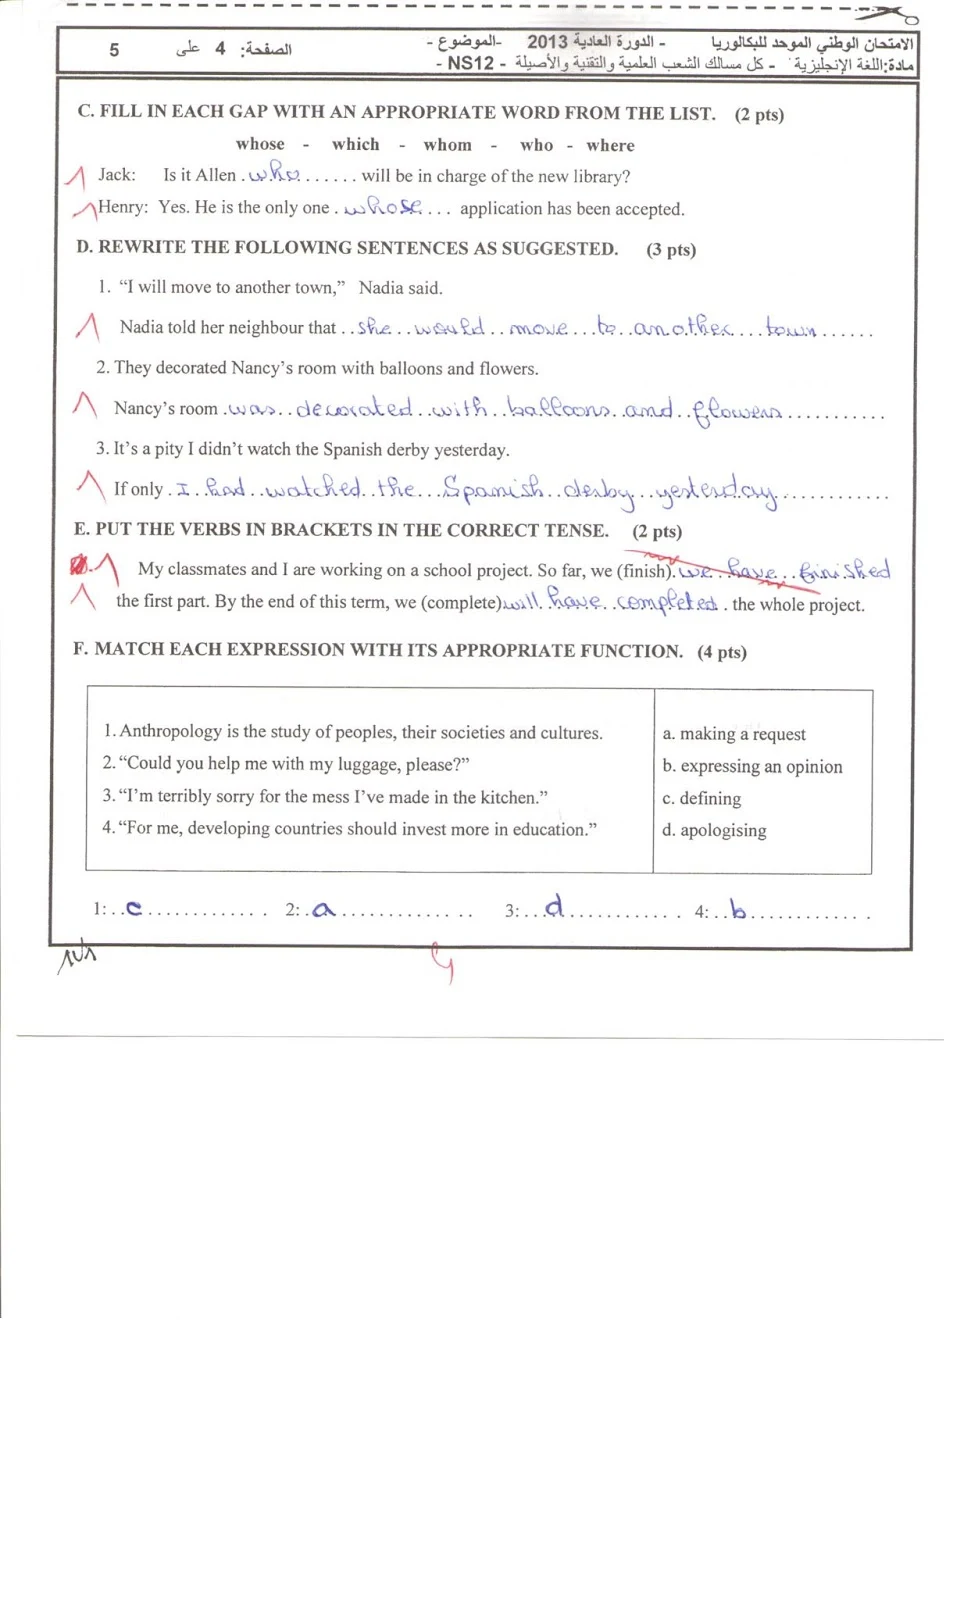 الامتحان الوطني الموحد للبكالوريا - الدورة العادية 2013 -الموضوع -
الصفحة: 4 على 5
مادة:اللغة الإنجليزية - كل مسالك الشعب العلمية والتقنية والأصيلة - NS12 -
C. FILL IN EACH GAP WITH AN APPROPRIATE WORD FROM THE LIST. (2 pts)
whose - which - whom - who - where
1 Jack: Is it Allen .who...... will be in charge of the new library?
1 Henry: Yes. He is the only one . whose... application has been accepted.
D. REWRITE THE FOLLOWING SENTENCES AS SUGGESTED. (3 pts)
1. “I will move to another town,” Nadia said.
1 Nadia told her neighbour that ..she..would..move...to..another...town......
2. They decorated Nancy’s room with balloons and flowers.
1 Nancy’s room .was..decorated..with..balloons..and..flowers...........
3. It’s a pity I didn’t watch the Spanish derby yesterday.
1 If only .I..had..watched..the...Spanish..derby..yesterday............
E. PUT THE VERBS IN BRACKETS IN THE CORRECT TENSE. (2 pts)
1 My classmates and I are working on a school project. So far, we (finish).we..have..finished
1 the first part. By the end of this term, we (complete)will.have..completed. the whole project.
F. MATCH EACH EXPRESSION WITH ITS APPROPRIATE FUNCTION. (4 pts)
1. Anthropology is the study of peoples, their societies and cultures.
2. “Could you help me with my luggage, please?”
3. “I’m terribly sorry for the mess I’ve made in the kitchen.”
4. “For me, developing countries should invest more in education.”
a. making a request
b. expressing an opinion
c. defining
d. apologising
1:..c............. 2:.a.............. 3:...d............ 4:..b.............